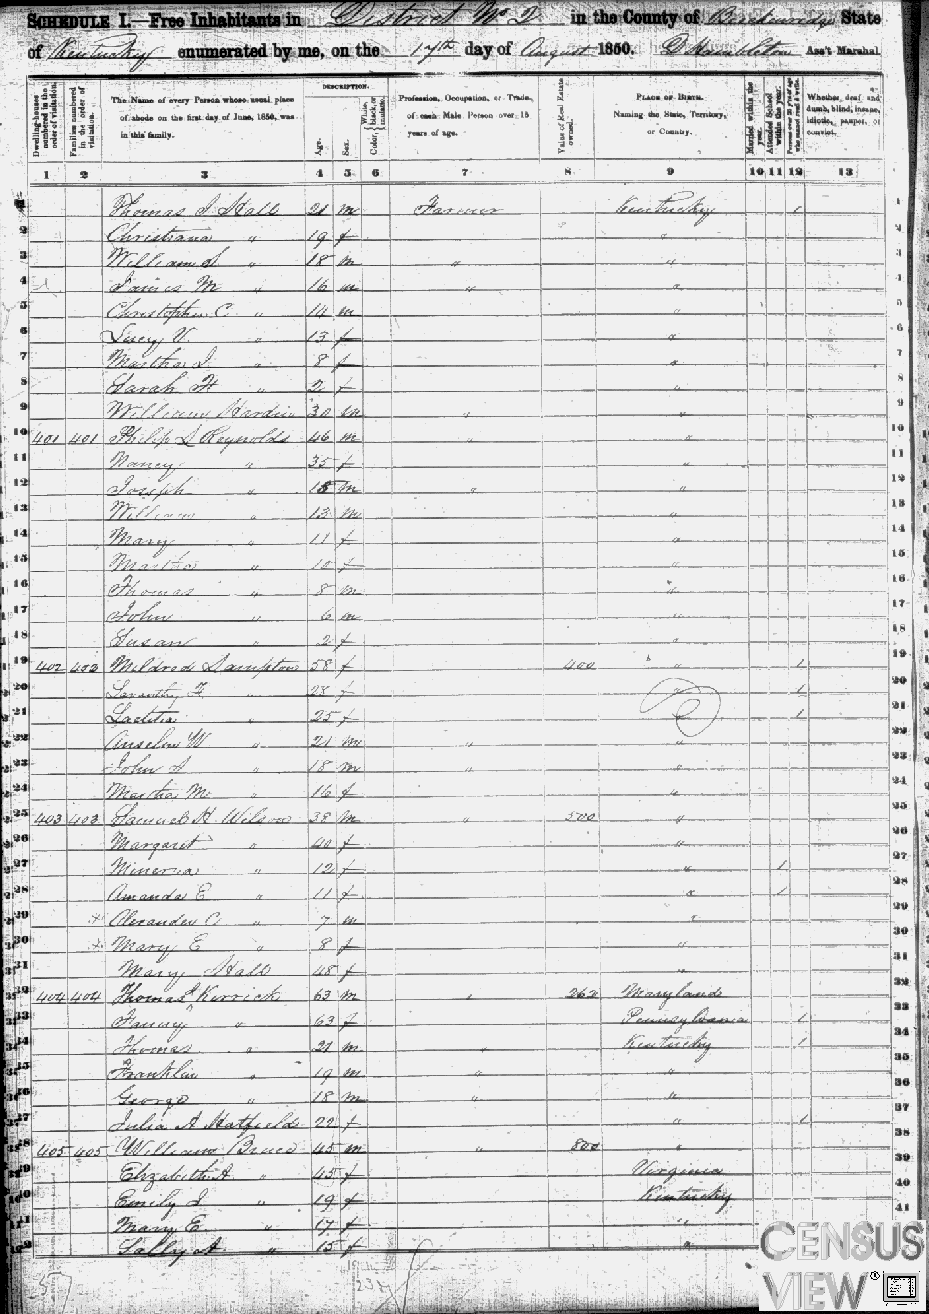 SCHEDULE I.—Free Inhabitants in District No 2 in the County of Breckenridge State
of Kentucky enumerated by me, on the 17th day of August 1850. Ass't Marshal
Dwelling-houses numbered in the order of visitation.
Families numbered in the order of visitation.
The Name of every Person whose usual place of abode on the first day of June, 1850, was in this family.
DESCRIPTION.
Age.
Sex.
Color, White, black, or mulatto.
Profession, Occupation, or Trade, of each Male Person over 15 years of age.
Value of Real Estate owned.
PLACE OF BIRTH. Naming the State, Territory, or Country.
Married within the year.
Attended School within the year.
Persons over 20 y'rs of age who cannot read & write.
Whether deaf and dumb, blind, insane, idiotic, pauper, or convict.
1 2 3 4 5 6 7 8 9 10 11 12 13
Thomas J Hall 21 m Farmer Kentucky 1 1
2 Christiana " 19 f " 2
3 William S " 18 m " " 3
4 James M " 16 m " " 4
5 Christopher C. " 14 m " 5
6 Lucy V. " 13 f " 6
7 Martha J " 8 f " 7
8 Sarah H " 2 f " 8
9 William Hardin 30 m " " 9
10 401 401 Philip L Reynolds 46 m " " 10
11 Nancy " 35 f " 11
12 Joseph " 15 m " " 12
13 William " 13 m " 13
14 Mary " 11 f " 14
15 Martha " 10 f " 15
16 Thomas " 8 m " 16
17 John " 6 m " 17
18 Susan " 2 f " 18
19 402 402 Mildred Lampton 58 f 400 " 1 19
20 " 28 f " 1 20
21 Laetitia " 25 f " 1 21
22 Anselm W " 21 m " " 22
23 John A " 18 m " " 23
24 Martha M " 16 f " 24
25 403 403 Samuel H Wilson 38 m " 500 " 25
26 Margaret " 40 f " 26
27 Minerva " 12 f " 1 27
28 Amanda E " 11 f " 1 28
29 Alexander C. " 7 m " 29
30 Mary E " 8 f " 30
31 Mary Hall 48 f " 31
32 404 404 Thomas Kerrick 63 m " 262 Maryland 32
33 Fanny " 63 f Pennsylvania 1 33
34 Thomas " 21 m " Kentucky 1 34
35 Franklin " 19 m " " 35
36 George " 18 m " " 36
37 Julia A Hatfield 22 f " 1 37
38 405 405 William Bruce 45 m " 800 " 38
39 Elizabeth A " 45 f Virginia 39
40 Emily J " 19 f Kentucky 40
41 Mary E " 17 f " 41
Sally A " 15 f "
CENSUS
VIEW®